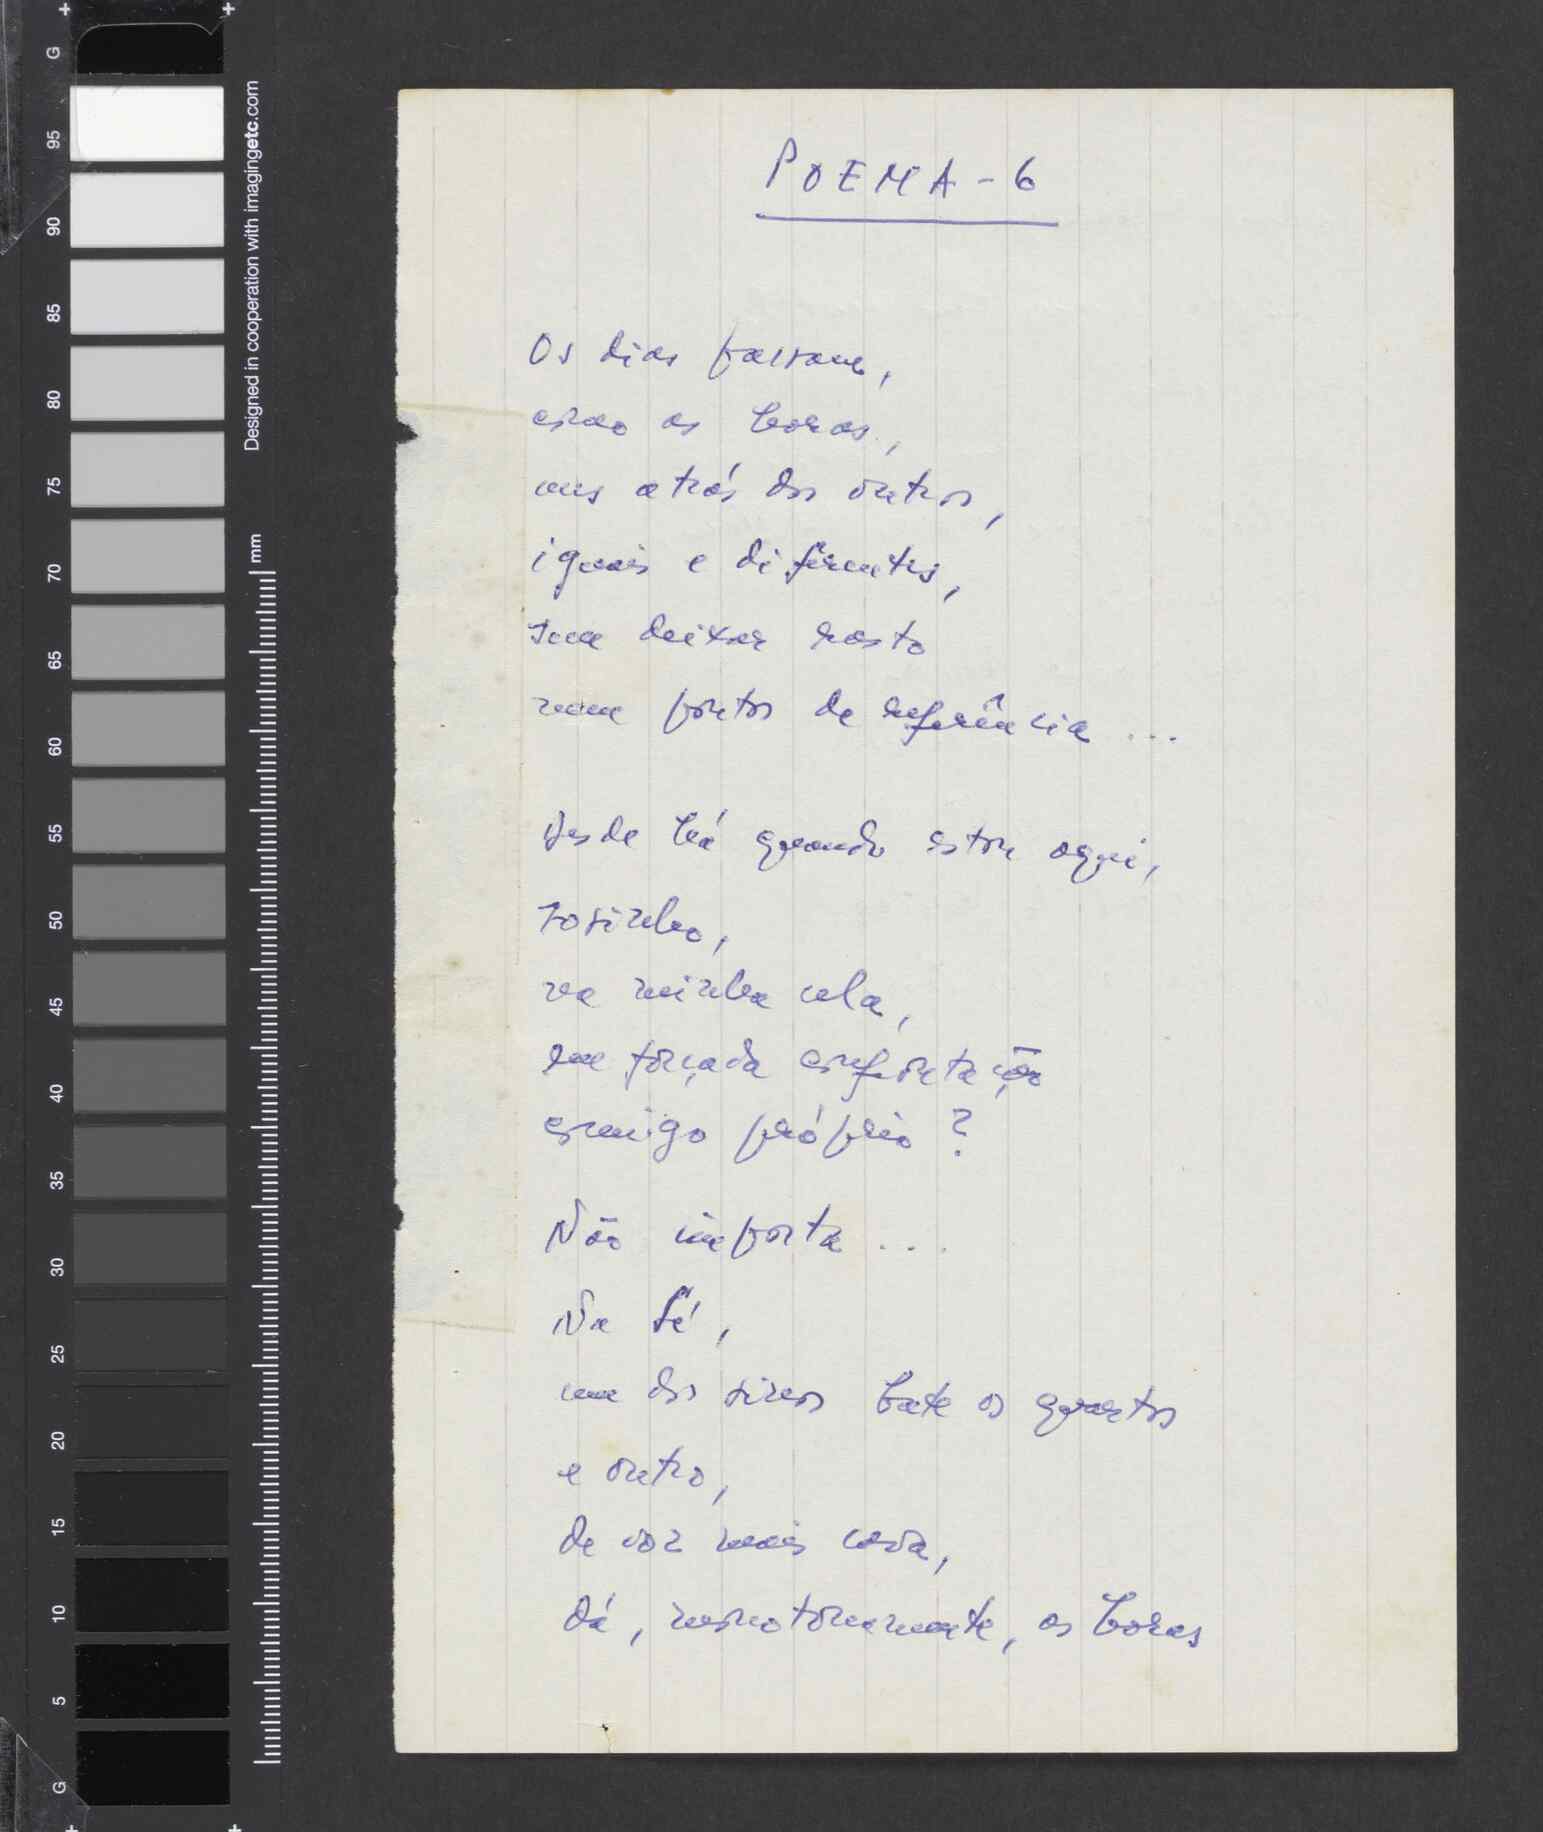 G
95
90
85
80
75
70
65
60
55
50
45
40
35
30
25
20
15
10
5
G
Designed in cooperation with imagingetc.com
mm
POEMA - 6
Os dias passam,
como as horas,
uns atrás dos outros,
iguais e diferentes,
sem deixar rasto
nem pontos de referência ...
Desde há quando estou aqui,
sosinho,
na minha cela,
em forçada confrontação
comigo próprio ?
Não importa ...
Na Sé,
um dos sinos bate os quartos
e outro,
de voz mais cava,
dá, monotonamente, as horas